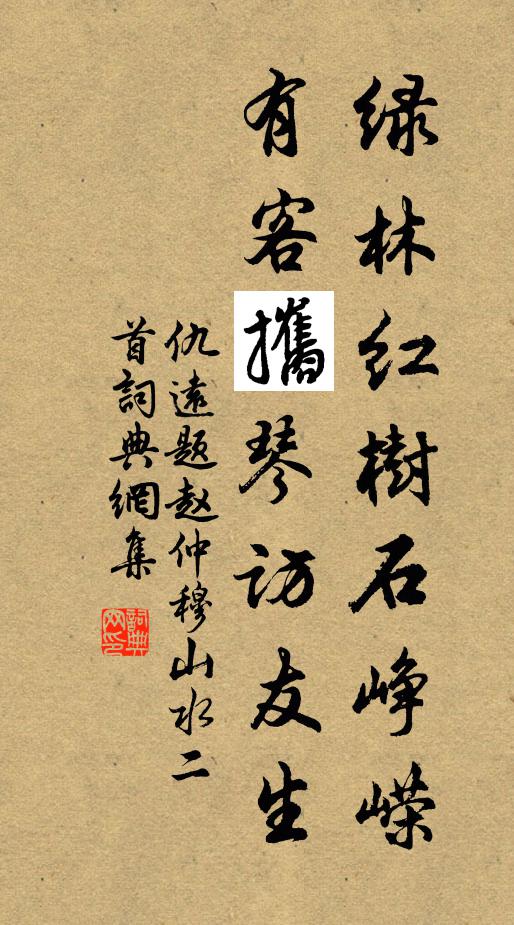 绿林红樹石峥嵘
有客攜琴访友生
仇遠题赵仲穆山水二
首詞典網集
詞典网印